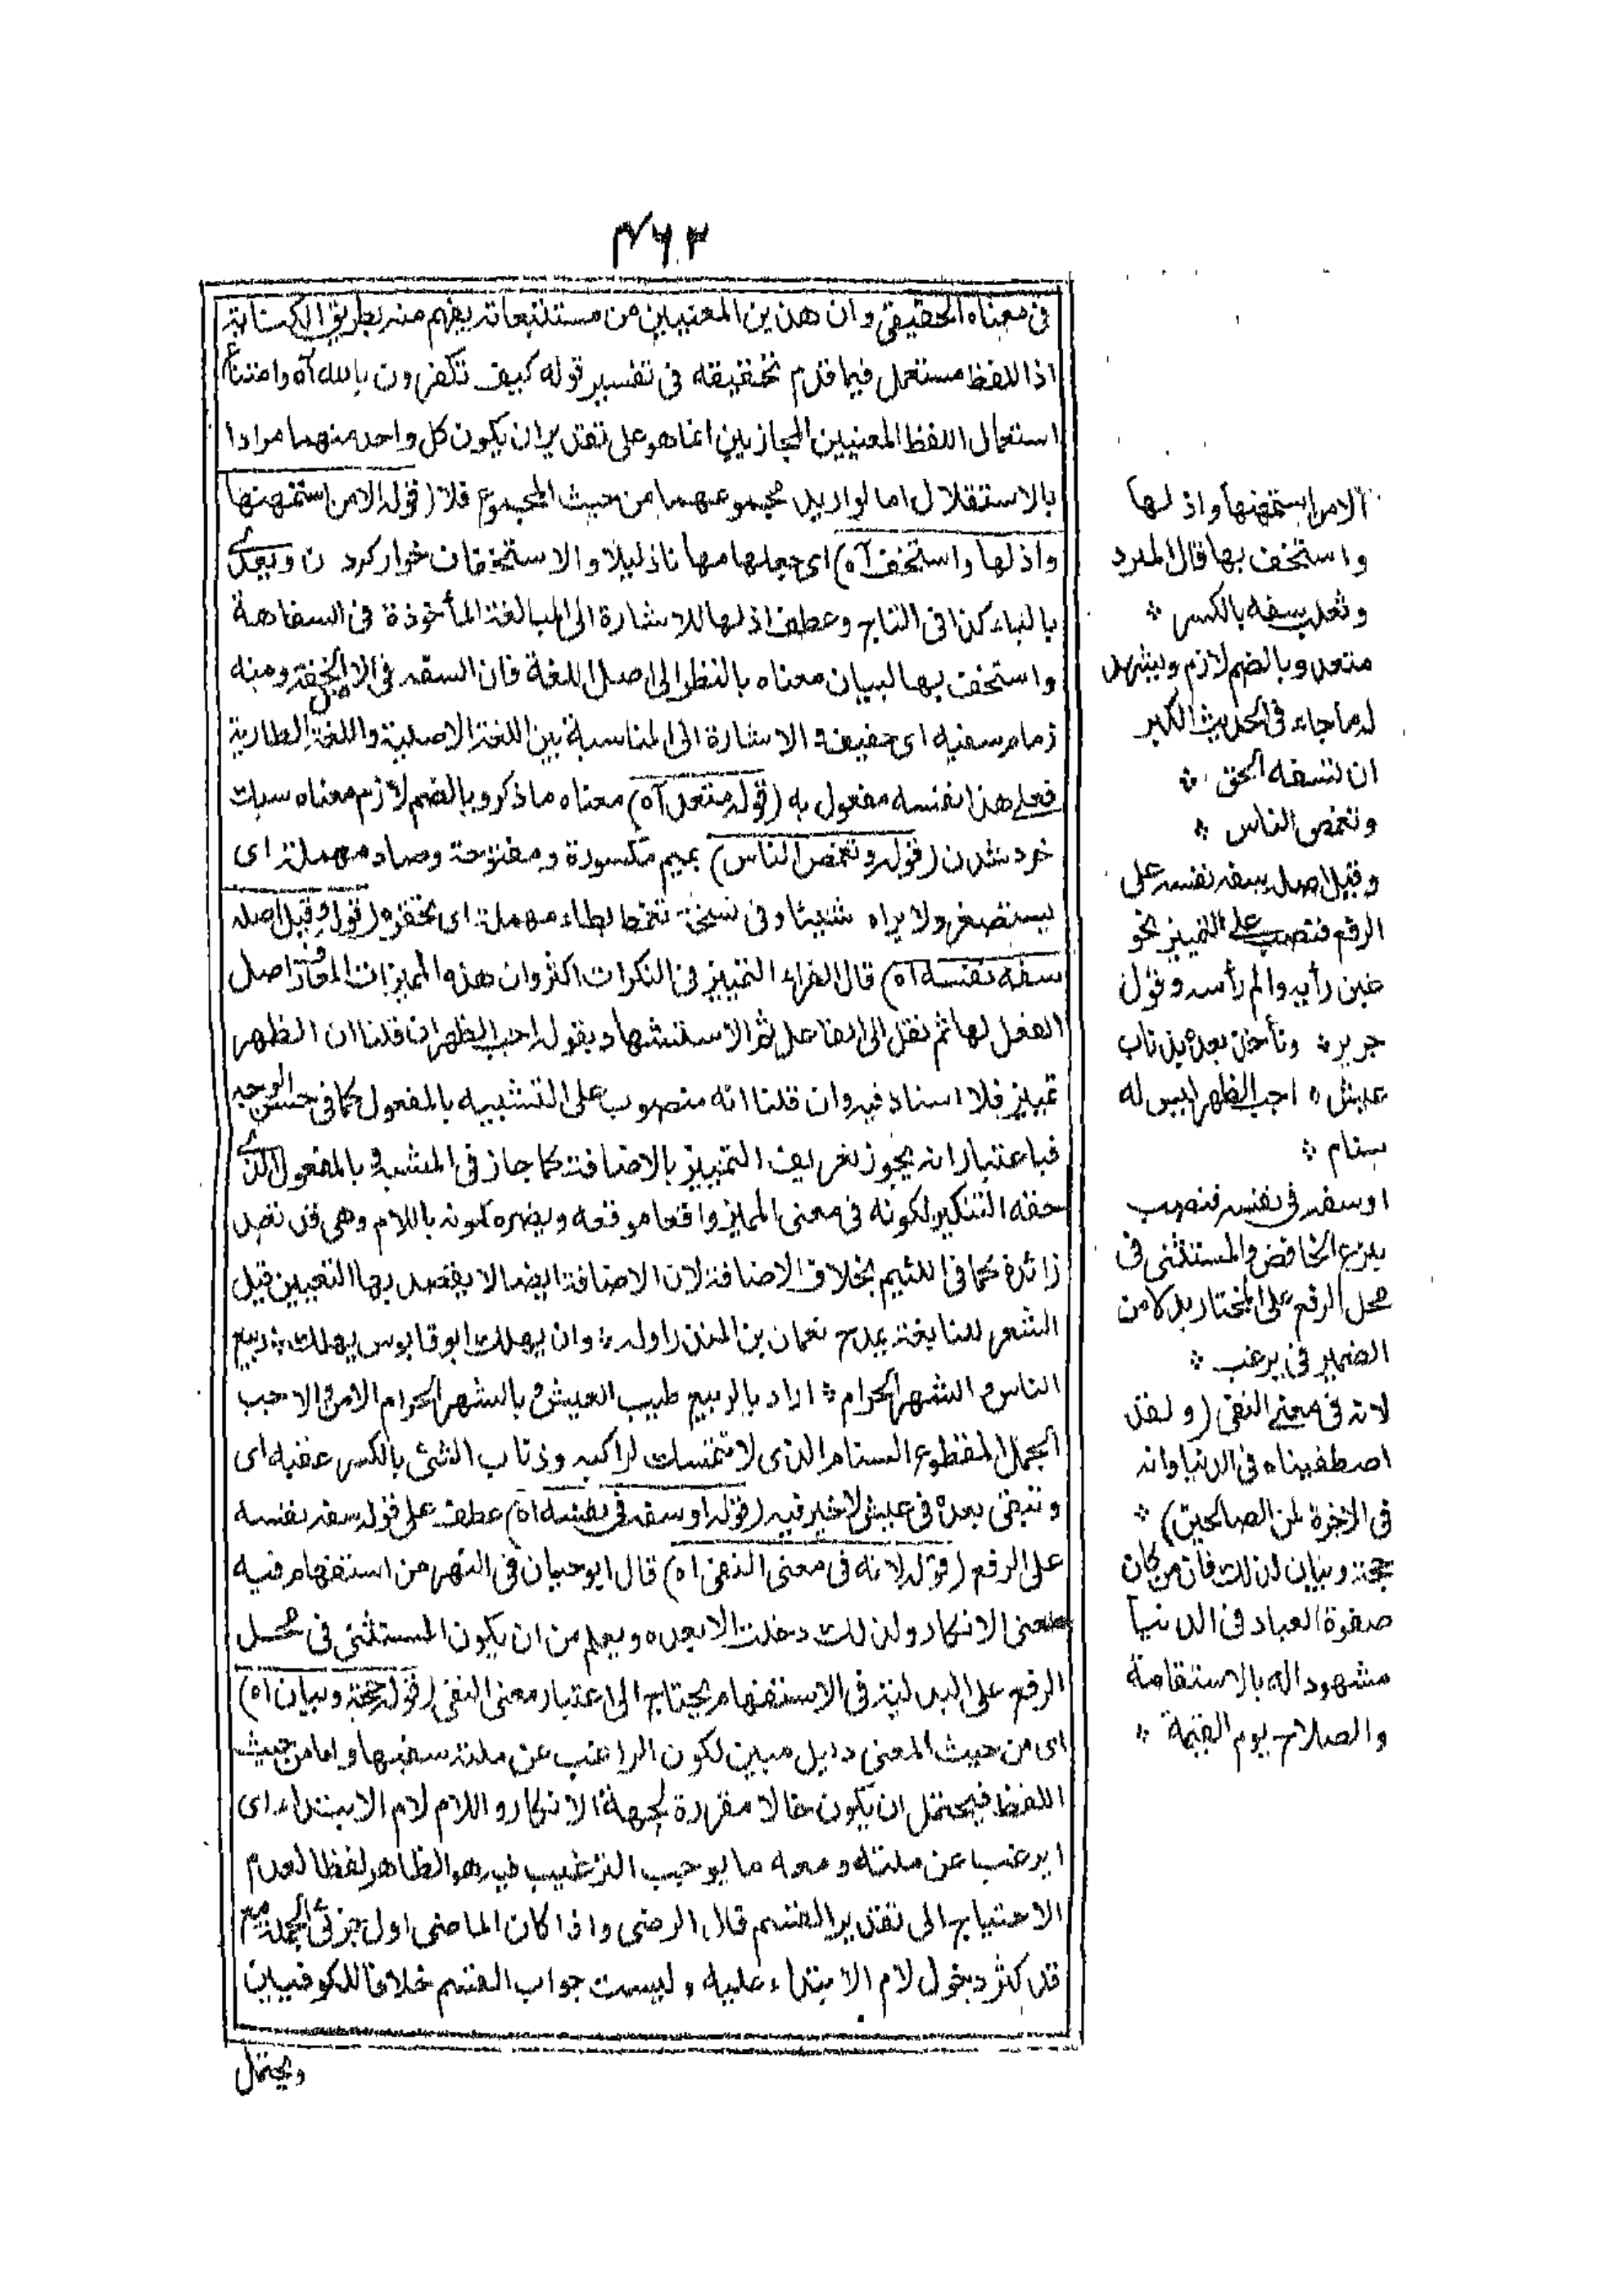 ۴۶۳
فى معناه الحقيقى وان هذين المعنيين من مستتبعاته يفهم منه بطريق الكناية
اذ اللفظ مستعمل فيما قدم تحقيقه فى تفسير قوله كيف تكفرون بالله آه وامتناع
استعمال اللفظ المعنيين المجازيين انما هو على تقدير ان يكون كل واحد منهما مرادا
بالاستقلال اما لو اريد مجموعهما من حيث المجموع فلا (قوله الا من استمهنها
واذلها واستخف آه) اى جعلها مهانا ذليلا والاستخفاف خوار كردن ويعدى
بالباء كذا فى التاج وعطف اذلها للاشارة الى المبالغة المأخوذة فى السفاهة
واستخف بها لبيان معناه بالنظر الى اصل اللغة فان السفه فى الاصل الخفة ومنه
زمام سفيه اى خفيف والاشارة الى المناسبة بين اللغة الاصلية واللغة الطارية
فعلى هذا نفسه مفعول به (قوله متعد آه) معناه ما ذكر وبالضم لازم معناه سبك
خرد شدن (قوله وتغمص الناس) بميم مكسورة ومفتوحة وصاد مهملة اى
يستصغر ولا يراه شيئا وفى نسخة تغمط بطاء مهملة اى تحقره (قوله وقيل اصله
سفه نفسه آه) قال الفراء التمييز فى النكرات اكثر وان هذه المميزات المعارف اصل
الفعل لها ثم نقل الى الفاعل ثم الاستشهاد بقوله اجب الظهر ان قلنا ان الظهر
تمييز فلا اسناد فيه وان قلنا انه منصوب على التشبيه بالمفعول كما فى حسن الوجه
فباعتبار انه يجوز تعريف التمييز بالاضافة كما جاز فى المشبه بالمفعول الذى
حقه التنكير لكونه فى معنى المميز واقعا موقعه ويضره كونه باللام وهى قد تقصد
زائدة كما فى اللئيم بخلاف الاضافة لان الاضافة ايضا لا يقصد بها التعيين قيل
الشعر للنابغة يمدح نعمان بن المنذر اوله ؞ وان يهلك ابو قابوس يهلك ؞ ربيع
الناس والشهر الحرام ؞ اراد بالربيع طيب العيش وبالشهر الحرام الامن والاجب
الجمل المقطوع السنام الذى لا تتمسك لراكبه وذناب الشئ بالكسر عقبه اى
ونبقى بعده فى عيش لا خير فيه (قوله او سفه فى نفسه آه) عطف على قوله سفه نفسه
على الرفع (قوله لانه فى معنى النفى آه) قال ابو حيان فى النهر من استفهام فيه
معنى الانكار ولذلك دخلت الا بعده ويعلم من ان يكون المستثنى فى محل
الرفع على البدلية فى الاستفهام يحتاج الى اعتبار معنى النفى (قوله حجة وبيان آه)
اى من حيث المعنى دليل مبين لكون الراغب عن ملته سفيها واما من حيث
اللفظ فيحتمل ان يكون حالا مقررة لجهة الانكار واللام لام الابتداء اى
ايرغب عن ملته ومعه ما يوجب الترغيب فيه هو الظاهر لفظا لعدم
الاحتياج الى تقدير القسم قال الرضى واذا كان الماضى اول جزئى الجملة مع
قد كثر دخول لام الابتداء عليه وليست جواب القسم خلافا للكوفيين
ويحتمل
الا من استمهنها واذلها
واستخف بها قال المبرد
وثعلب سفه بالكسر ؞
متعد وبالضم لازم ويشهد
له ما جاء فى الحديث الكبر
ان تسفه الحق ؞
وتغمص الناس ؞
وقيل اصله سفه نفسه على
الرفع فنصب على التمييز نحو
غبن رأيه والم رأسه وقول
جرير ؞ ونأخذ بعده بذناب
عيش ؞ اجب الظهر ليس له
سنام ؞
او سفه فى نفسه فنصب
بنزع الخافض والمستثنى فى
محل الرفع على المختار بدلا من
الضمير فى يرغب ؞
لانه فى معنى النفى (ولقد
اصطفيناه فى الدنيا وانه
فى الآخرة لمن الصالحين) ؞
حجة وبيان لذلك فان من كان
صفوة العباد فى الدنيا
مشهودا له بالاستقامة
والصلاح يوم القيمة ؞